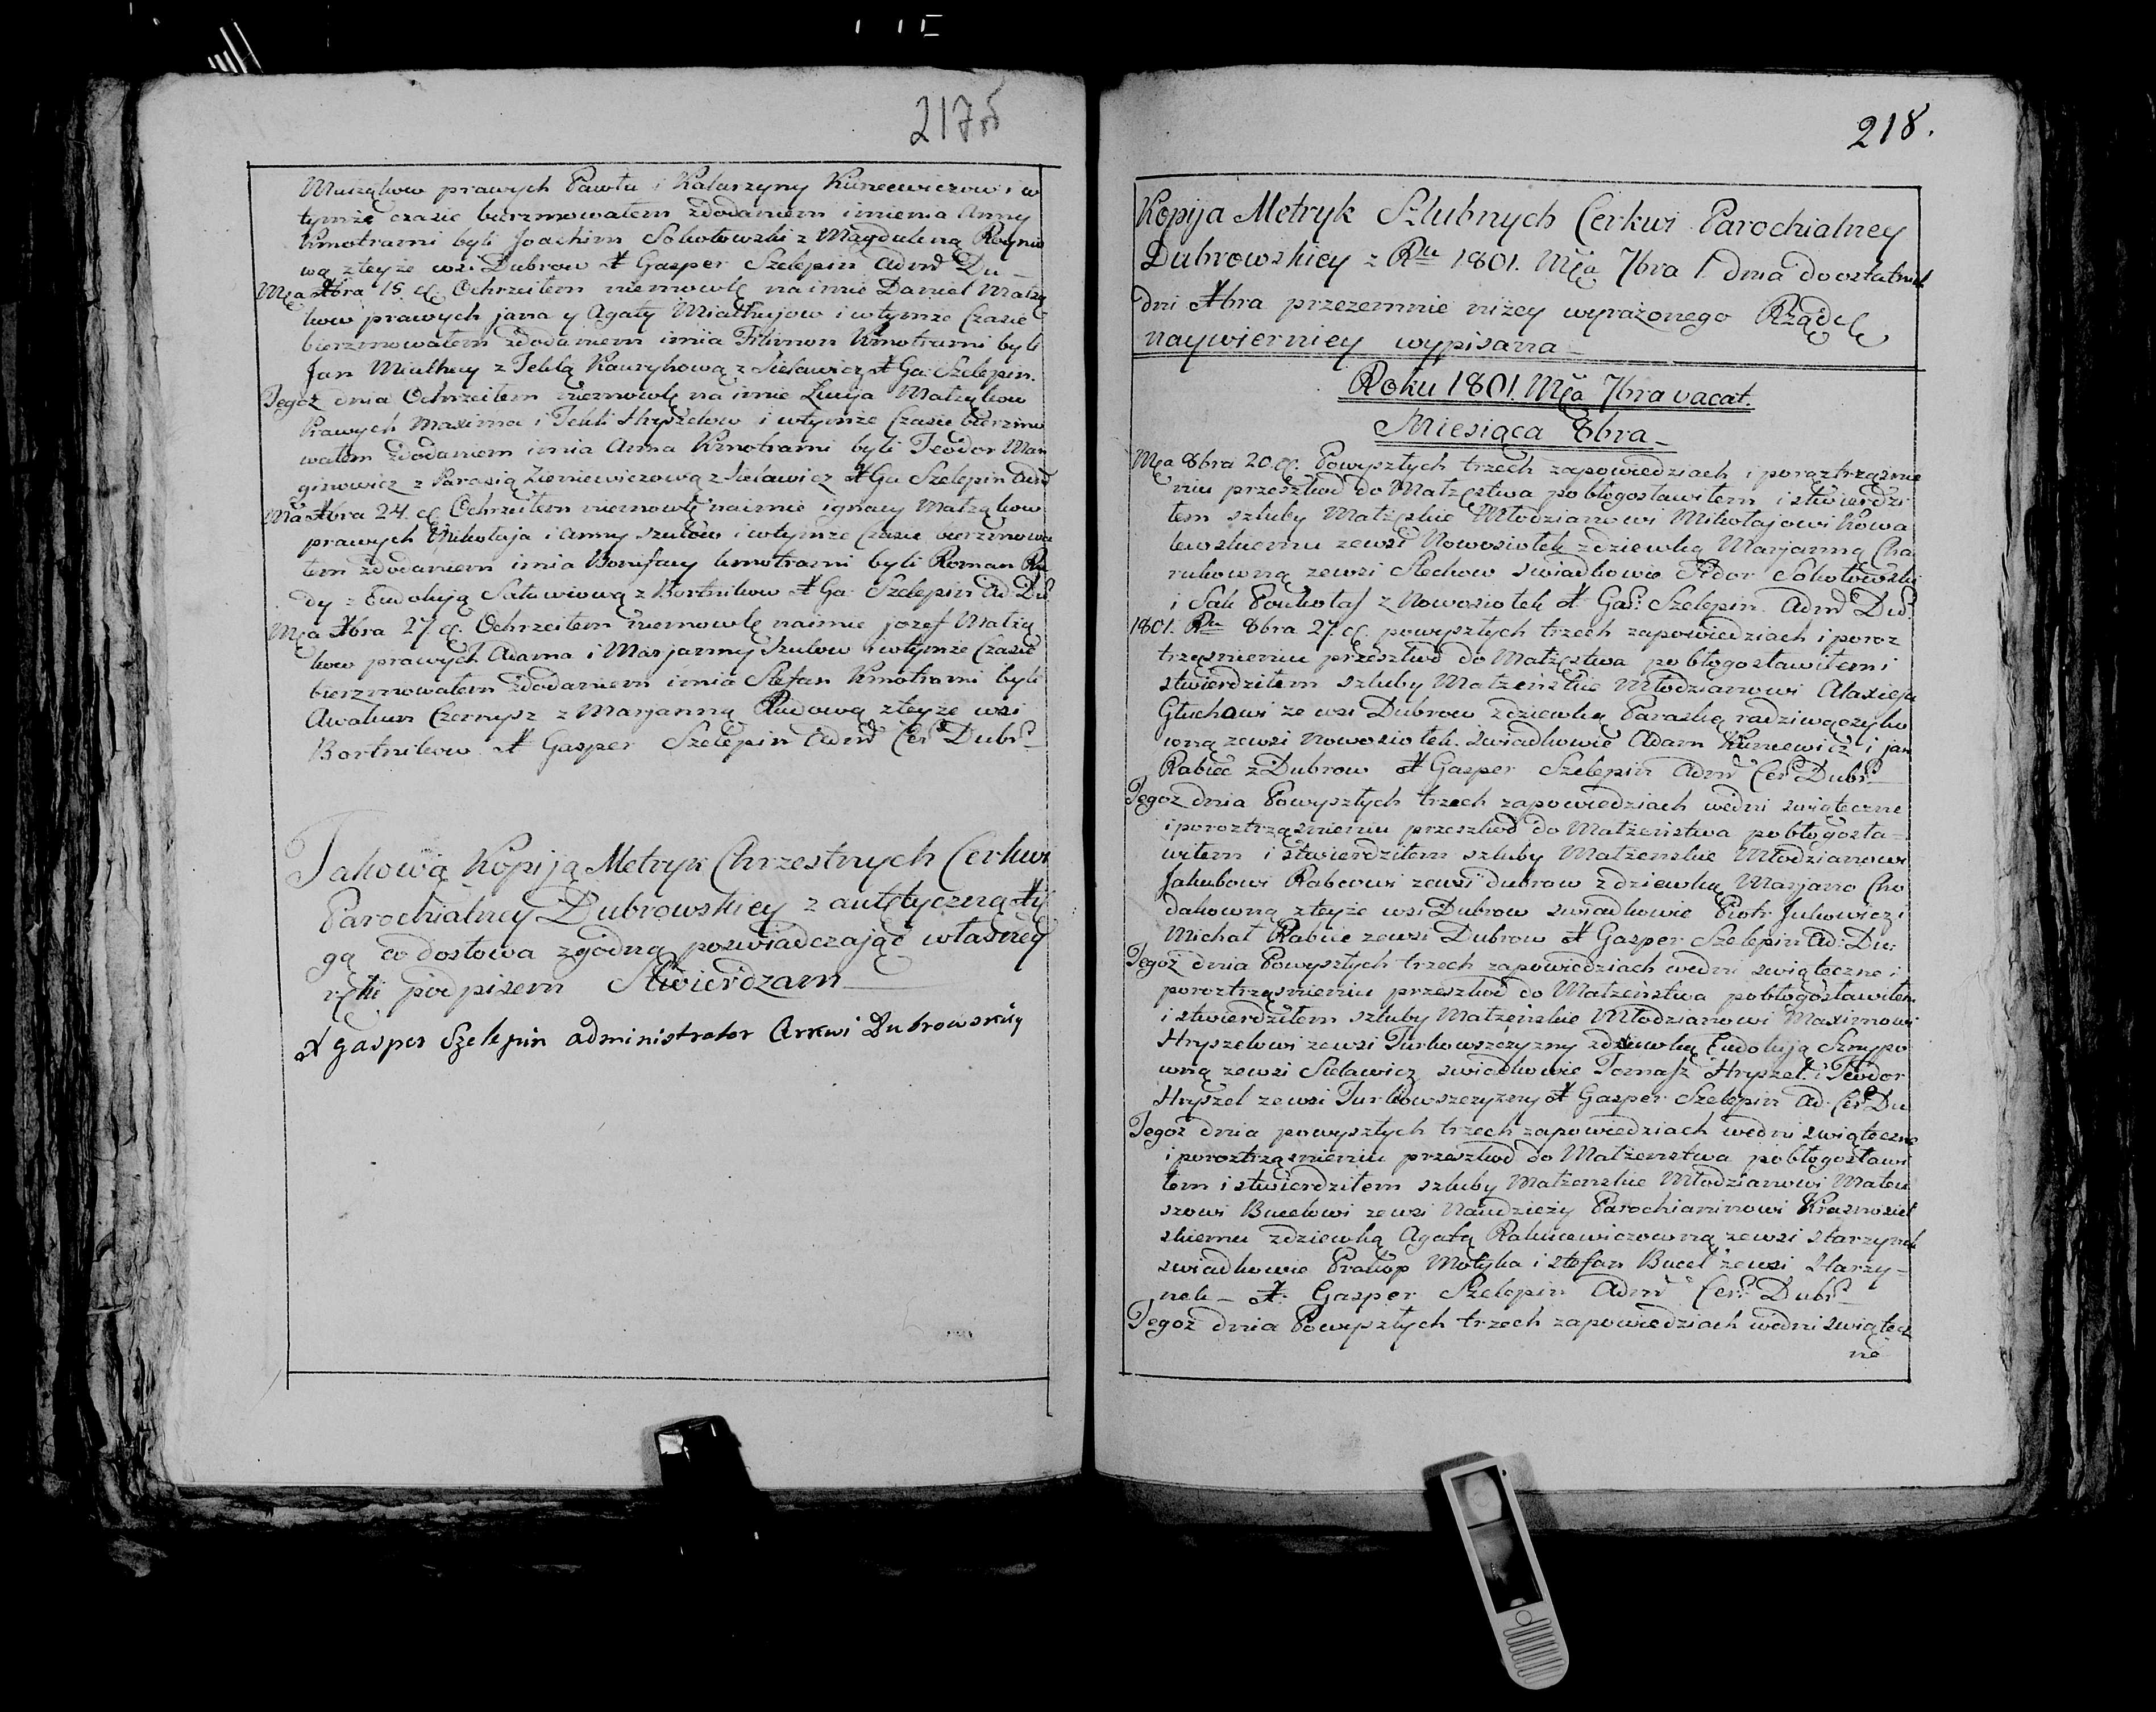 217
Małżąkow prawych Pawła i Katarzyny Kuncewiczow i w
tymże czasie bierzmowałem zdodaniem imienia Anny
Kmotrami byli Joachim Sokołowski z Magdaleną Roynio
wą zteyże wsi Dubrow X Gasper Szelepin Admr Du
Mca Xbra 15. d. Ochrzciłem niemowlę na imie Daniel Małżą
kow prawych jana y Agaty Miałkujow i wtymże Czasie
bierzmowałem zdodaniem imia Filimon Kmotrami byli
Jan Miałkuy z Teklą Kaurykową z Sielawicz X Ga: Szelepin.
Tegoż dnia Ochrzciłem niemowlę na imie Łucyja Małżąkow
Prawych Maxima i Tekli Hryszelow i wtymże Czasie bierzmo
wałem zdodaniem imia Anna Kmotrami byli Teodor Mar
ginowicz z Parasią Zieniewiczową z Sielawicz X Ga Szelepin Adm
Mca Xbra 24. d. Ochrzciłem niemowlę naimie ignacy Małżąkow
prawych Mikołaja i Anny Szulow i wtymże Czasie bierzmowa
łem zdodaniem imia Bonifacy kmotrami byli Roman Ru
dy z Eudokiją Saławiową z Bortnikow X Ga Szelepin Ad Du
Mca Xbra 27 d. Ochrzciłem niemowlę naimie jozef Małżą
kow prawych Adama i Marjanny Szulow i wtymże Czasie
bierzmowałem zdodaniem imia Stefan Kmotrami byli
Awakum Czernysz z Marjanną Rudową zteyże wsi
Bortnikow X Gasper Szelepin Admr Cer Dubr
Takową Kopiją Metryk Chrzestnych Cerkwi
Parochialney Dubrowskiey z autętyczną Xy
gą co dosłowa zgodną poswiadczając własney
ręki podpisem Stwierdzam
X Gasper Szelepin administrator Cerkwi Dubrowskiey
218.
Kopija Metryk Szlubnych Cerkwi Parochialney
Dubrowskiey z Ru 1801. Mca 7bra 1. dnia do ostatnich
dni Xbra przezemnie niżey wyrażonego Rządcę
naywierniey wypisana
Roku 1801. Mca 7bra vacat.
Miesiąca 8bra
Mca 8bra 20. d. Powyszłych trzech zapowiedziach i poroztrząsnie
niu przeszkod do Małżęstwa pobłogosławiłem i stwierdzi
łem szluby Małżęskie Młodzianowi Mikołajowi Kowa
lewskiemu zewsi Nowosiołek zdziewką Marjanną Cha
rukowną zewsi Stechow swiadkowie Fedor Sokołowski
i Sak Poukotaś z Nowosiołek X Gas: Szelepin Admr Du
1801. Ru 8bra 27. d. powyszłych trzech zapowiedziach i poroz
trząsnieniu przeszkod do Małżęstwa pobłogosławiłem i
stwierdziłem szluby Małżeńskie Młodzianowi Alaxieju
Głuchowi ze wsi Dubrow zdziewką Paraską radziwączyko
wną zewsi Nowosiołek. swiadkowie Adam Kuncewicz i jan
Rabiec z Dubrow X Gasper Szelepin Admr Cer Dubr
Tegoż dnia Powyszłych trzech zapowiedziach wedni swiąteczne
i poroztrząsnieniu przeszkod do Małżeństwa pobłogosła-
wiłem i stwierdziłem szluby Małżenskie Młodzianowi
Jakubowi Rabcowi zewsi dubrow zdziewką Marjano Cho
dakowną zteyże wsi Dubrow swiadkowie Piotr Jukowicz i
Michał Rabiec zewsi Dubrow X Gasper Szelepin Ad: Du:
Tegoż dnia Powyszłych trzech zapowiedziach wedni swiąteczne i
poroztrząsnieniu przeszkod do Małżeństwa pobłogosławiłem
i stwierdziłem szluby Małżenskie Młodzianowi Maximowi
Hryszelowi zewsi Turkowszczyzny zdziewką Eudokiją Sznypo
wną zewsi Sielawicz swiadkowie Tomasz Hryszel i Teodor
Hryszel zewsi Turkowszczyzny X Gasper Szelepin Ad: Cer Du
Tegoż dnia powyszłych trzech zapowiedziach wedni swiąteczne
i poroztrząsnieniu przeszkod do Małżenstwa pobłogosławi
łem i stwierdziłem szluby Małżenskie Młodzianowi Mateu
szowi Bucelowi zewsi Naudzieży Parochianinowi Krasnosiel
skiemu zdziewką Agatą Rakucewiczowną zewsi starzynek
swiadkowie Prakop Motyka i stefan Bucel zewsi Starzy-
nek X Gasper Szelepin Admr Cer Dubr
Tegoż dnia Powyszłych trzech zapowiedziach wedni swiątecz
ne